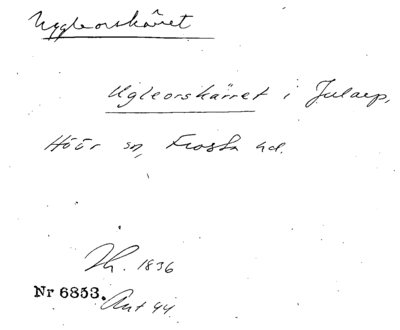 Uggleorskäret
Ugleorskärret i Julaep,
Höör sn, Frosta hd.
Th. 1836
Nr 6853. Ant 44